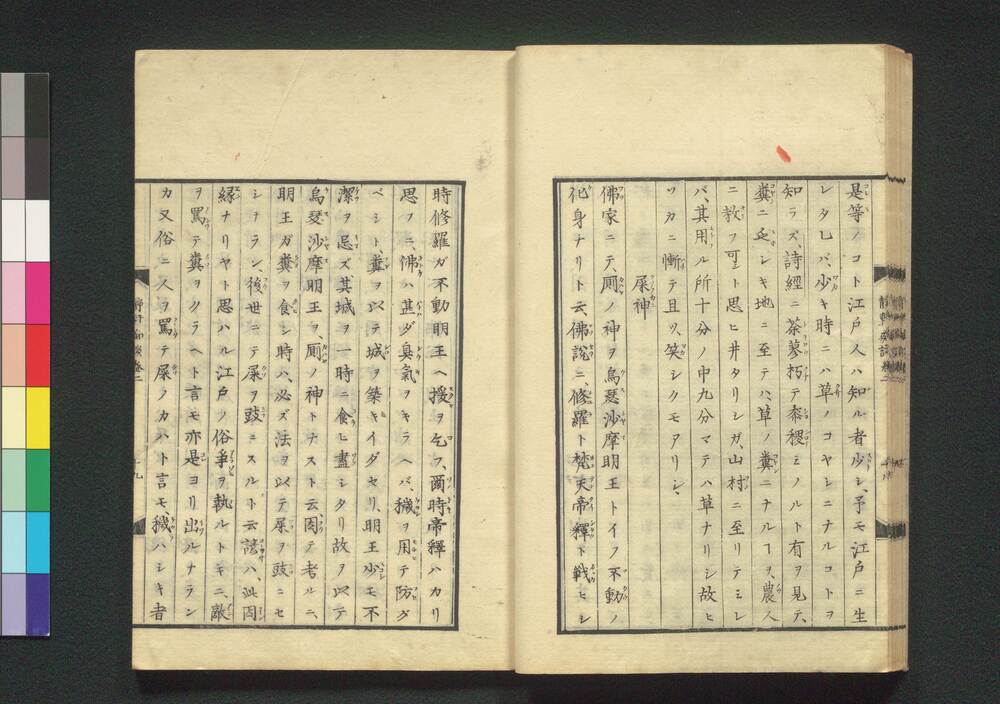 是等ノコト江戸人ハ知ル者少シ、予モ江戸ニ生
レタレバ、少キ時ニハ草ノコヤシニナルコトヲ
知ラズ、詩經ニ荼蓼朽テ黍稷ミノルト有ヲ見テ、
糞ニ乏シキ地ニ至テハ、草ノ糞ニナルヿヲ、農人
ニ教フ可ト思ヒ井タリシガ、山村ニ至リテミレ
バ、其用ル所十分ノ中九分マテハ草ナリシ故ヒ
ソカニ慚テ且ツ笑シクモアリシ、
屎神
佛家ニテ、厠ノ神ヲ烏瑟沙摩明王トイフ不動ノ
化身ナリト云、佛説ニ、修羅ト梵天帝釋ト戰ヒシ
時修羅ガ不動明王ヘ援ヲ乞フ、爾時帝釋ハカリ
思フニ、佛ハ甚ダ臭氣ヲキラヘバ、穢ヲ用テ防グ
ベシト、糞ヲ以テ城ヲ築キイダセリ、明王少モ不
潔ヲ忌ズ、其城ヲ一時ニ食ヒ盡シタリ故ヲ以テ
烏瑟沙摩明王ヲ、厠ノ神トナスト云因テ考ルニ、
明王ガ糞ヲ食シ時ハ、必ズ法ヲ以テ屎ヲ豉ニセ
シナラン、後世ニテ屎ヲ豉ニスルト云諺ハ、此因
縁ナリヤト思ハル江戸ノ俗爭ヲ執ルトキニ、敵
ヲ罵テ糞ヲクラヘト言モ亦是ヨリ出ルナラン
カ又俗ニ人ヲ罵テ屎ノカハト言モ、穢ハシキ者